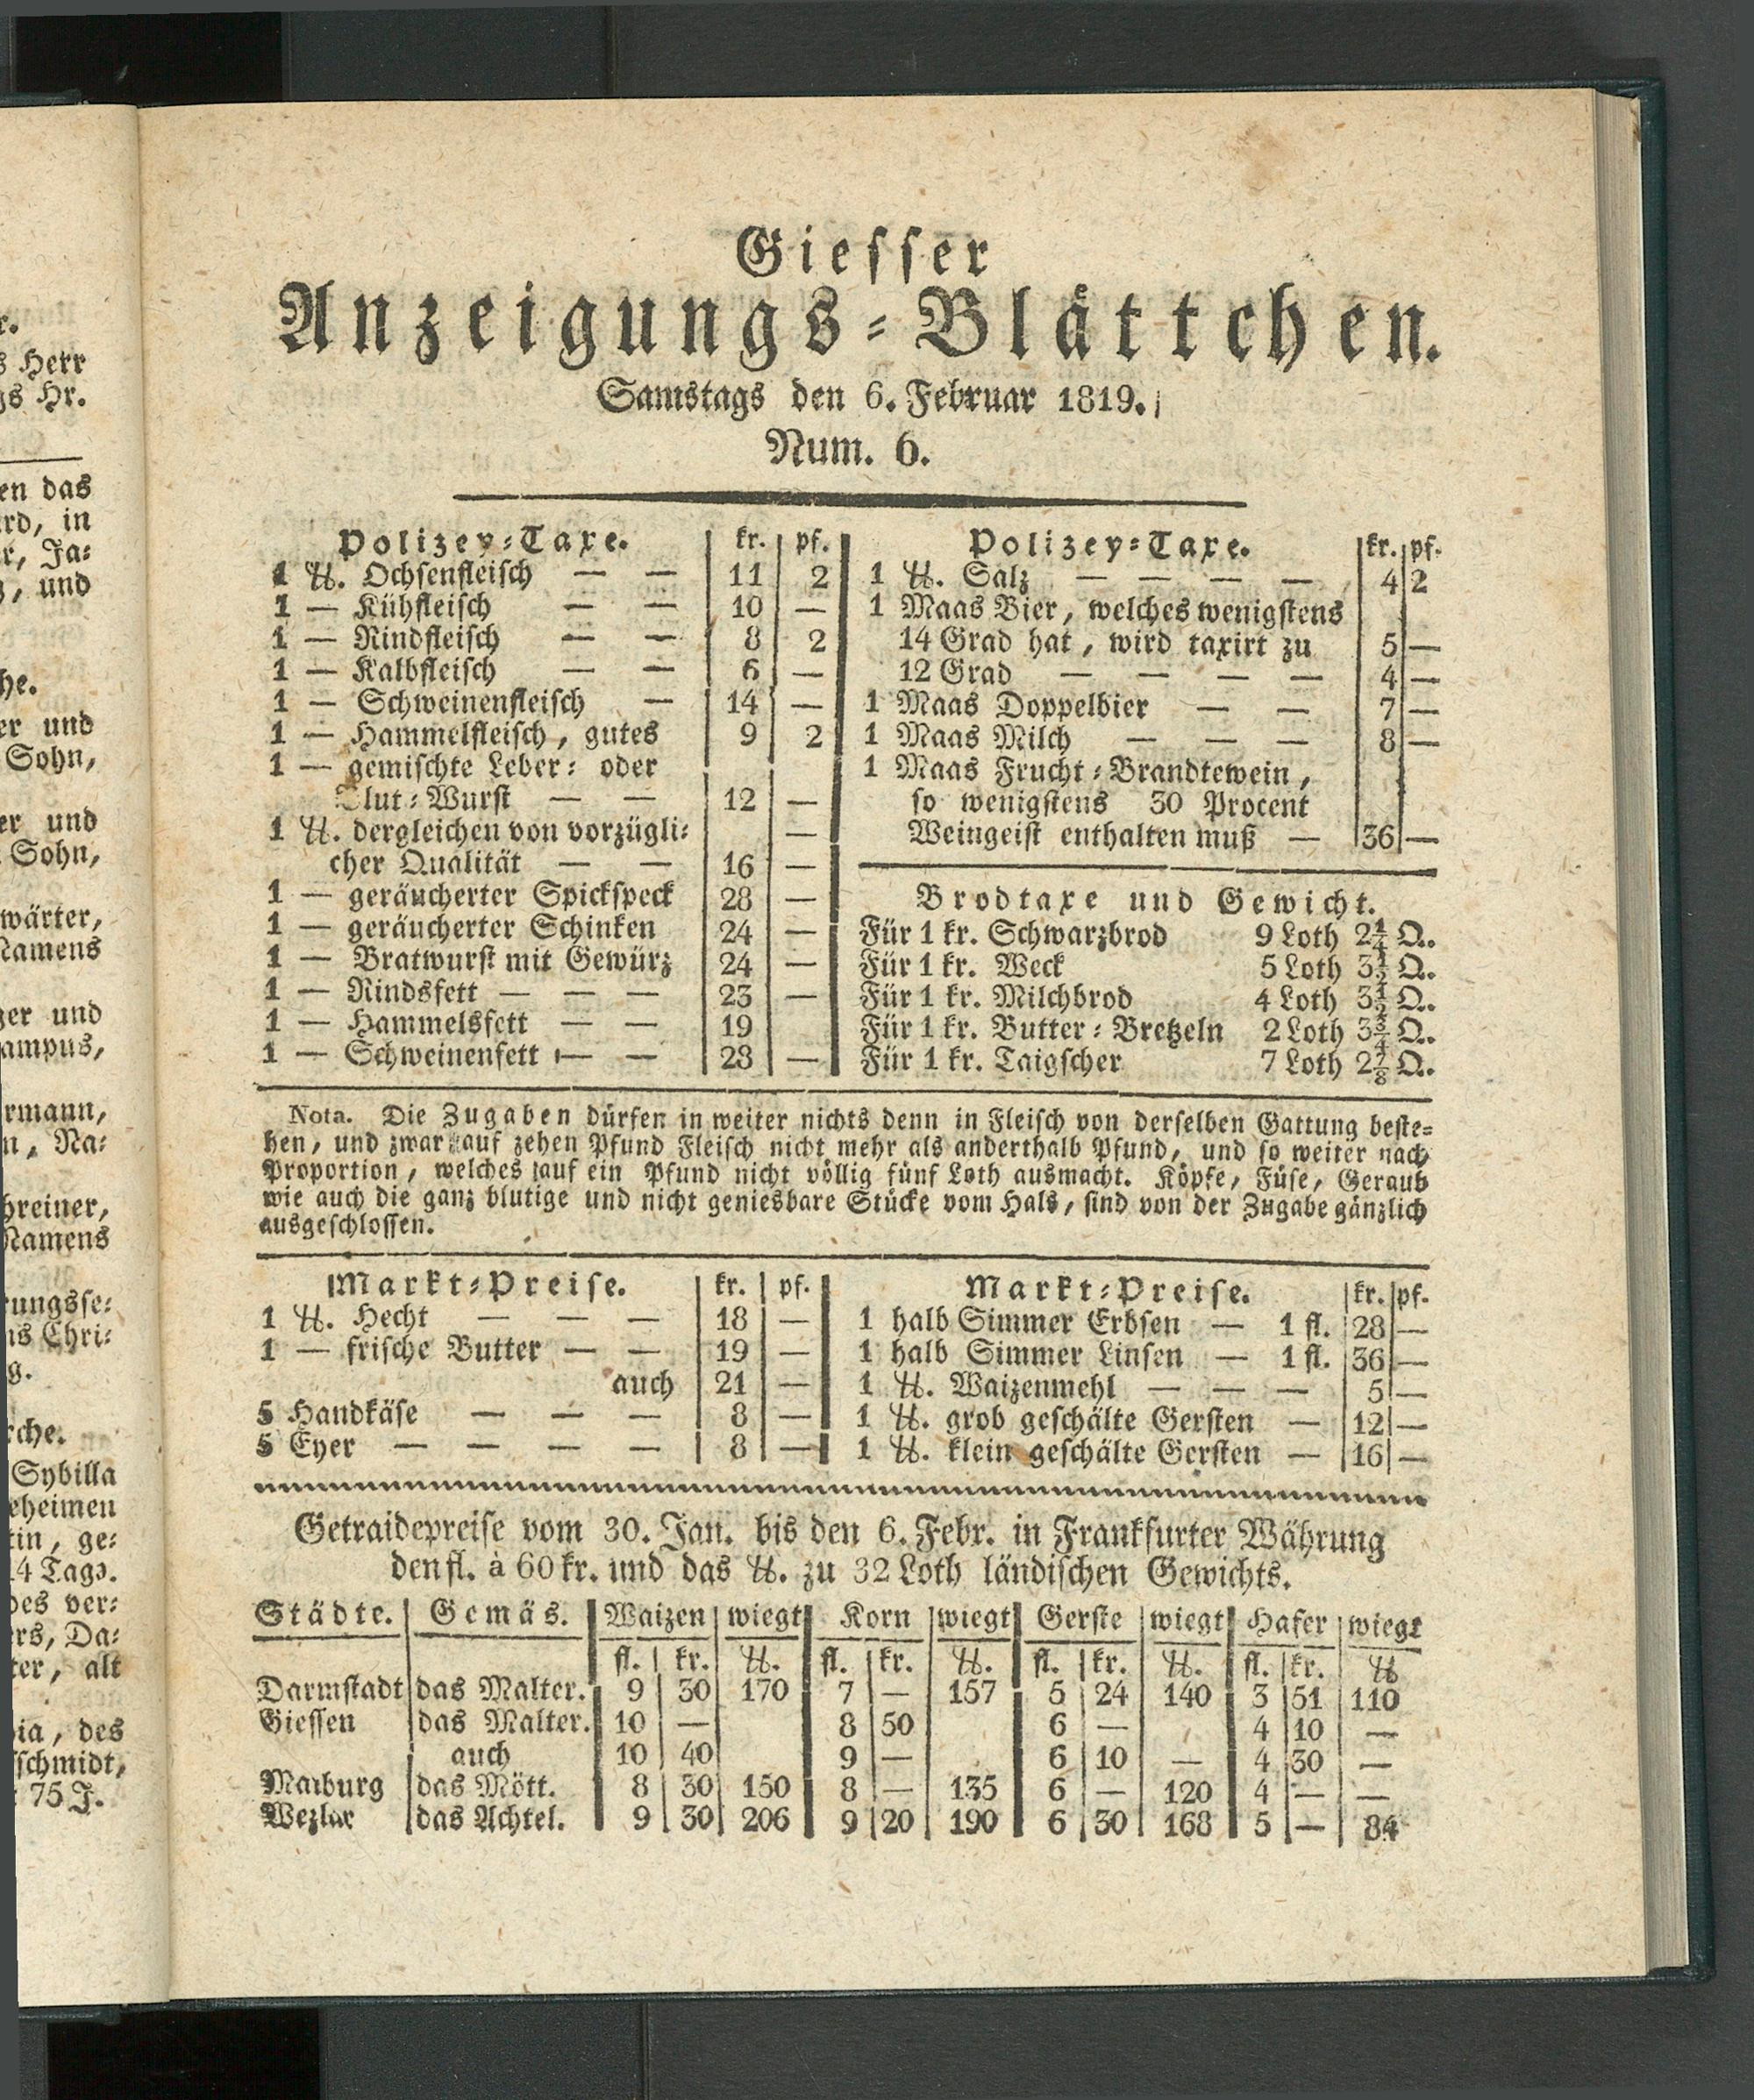 Giesser
Anzeigungs-Blättchen.
Samstags den 6. Februar 1819.
Num. 6.
Polizey-Taxe. kr. pf.
1 ℔. Ochsenfleisch — — 11 2
1 — Kühfleisch — — 10 —
1 — Rindfleisch — — 8 2
1 — Kalbfleisch — — 6 —
1 — Schweinenfleisch — 14 —
1 — Hammelfleisch, gutes 9 2
1 — gemischte Leber- oder
Blut-Wurst — — 12 —
1 ℔. dergleichen von vorzügli- —
cher Qualität — — 16 —
1 — geräucherter Spickspeck 28 —
1 — geräucherter Schinken 24 —
1 — Bratwurst mit Gewürz 24 —
1 — Rindsfett — — — 23 —
1 — Hammelsfett — — 19
1 — Schweinenfett — — 28 —
Polizey-Taxe. kr. pf.
1 ℔. Salz — — — — 4 2
1 Maas Bier, welches wenigstens
14 Grad hat, wird taxirt zu 5 —
12 Grad — — — — 4 —
1 Maas Doppelbier — — 7 —
1 Maas Milch — — — 8 —
1 Maas Frucht-Brandtewein,
so wenigstens 30 Procent
Weingeist enthalten muß — 36 —
Brodtaxe und Gewicht.
Für 1 kr. Schwarzbrod 9 Loth 2¼ Q.
Für 1 kr. Weck 5 Loth 3½ Q.
Für 1 kr. Milchbrod 4 Loth 3½ Q.
Für 1 kr. Butter-Bretzeln 2 Loth 3¾ Q.
Für 1 kr. Taigscher 7 Loth 2⅞ Q.
Nota. Die Zugaben dürfen in weiter nichts denn in Fleisch von derselben Gattung beste-
hen, und zwar auf zehen Pfund Fleisch nicht mehr als anderthalb Pfund, und so weiter nach
Proportion, welches auf ein Pfund nicht völlig fünf Loth ausmacht. Köpfe, Füse, Geraub
wie auch die ganz blutige und nicht geniesbare Stücke vom Hals, sind von der Zugabe gänzlich
ausgeschlossen.
Markt-Preise. kr. pf.
1 ℔. Hecht — — — 18 —
1 — frische Butter — — 19 —
auch 21 —
5 Handkäse — — — 8 —
5 Eyer — — — — 8 —
Markt-Preise. kr. pf.
1 halb Simmer Erbsen — 1 fl. 28 —
1 halb Simmer Linsen — 1 fl. 36 —
1 ℔. Waizenmehl — — — 5 —
1 ℔. grob geschälte Gersten — 12 —
1 ℔. klein geschälte Gersten — 16 —
Getraidepreise vom 30. Jan. bis den 6. Febr. in Frankfurter Währung
den fl. à 60 kr. und das ℔. zu 32 Loth ländischen Gewichts.
Städte. Gemäs. Waizen wiegt Korn wiegt Gerste wiegt Hafer wiegt
fl. kr. ℔. fl. kr. ℔. fl. kr. ℔. fl. kr. ℔
Darmstadt das Malter. 9 30 170 7 — 157 5 24 140 3 51 110
Giessen das Malter. 10 — 8 50 6 — 4 10 —
auch 10 40 9 — 6 10 — 4 30 —
Marburg das Mött. 8 30 150 8 — 135 6 — 120 4 — —
Wezlar das Achtel. 9 30 206 9 20 190 6 30 168 5 — 84